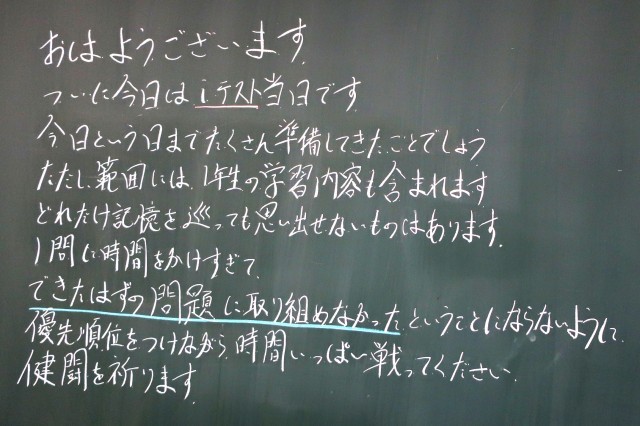 おはようございます。
ついに今日はiテスト当日です。
今日という日までたくさん準備してきたことでしょう
ただし、範囲には、1年生の学習内容も含まれます
どれだけ記憶を巡っても思い出せないものはあります。
1問に時間をかけすぎて、
できたはずの問題に取り組めなかった、ということにならないように、
優先順位をつけながら、時間いっぱい戦ってください。
健闘を祈ります。